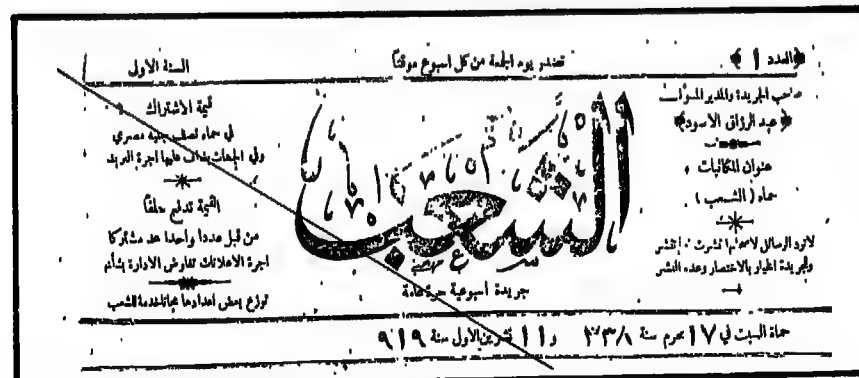 ﴿العدد ١﴾
تصدر يوم الجمعة من كل اسبوع موقتاً
السنة الاولى
صاحب الجريدة والمدير المسؤل
﴿عبد الرزاق الاسود﴾
عنوان المكاتبات
حماه (الشعب)
لاترد الرسائل لاصحابها نشرت ام لم تنشر
وللجريدة الخيار بالاختصار وعدم النشر
الشعب
جريدة أسبوعية حرة عامة
قيمة الاشتراك
في حماه نصف جنيه مصري
وفي الجهات يضاف عليها اجرة البريد
القيمة تدفع سلفاً
من قبل عددا واحدا عد مشتركا
اجرة الاعلانات تفاوض الادارة بشأنها
توزع بعض اعدادها مجانا خدمة للشعب
حماة السبت في ١٧ محرم سنة ١٣٣٨ و ١١ تشرين الاول سنة ٩١٩